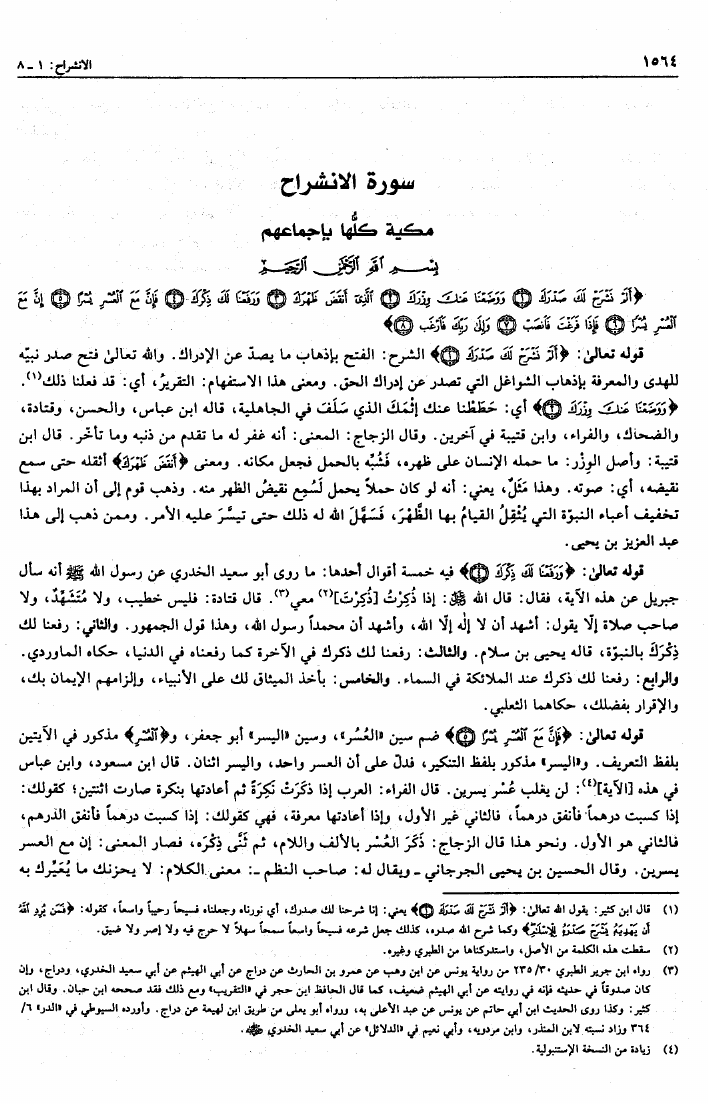 ١٥٦٤
الانشراح: ١ ـ ٨
سورة الانشراح
مكية كلُّها بإجماعهم
بِسْمِ اللَّهِ الرَّحْمَنِ الرَّحِيمِ
﴿أَلَمْ نَشْرَحْ لَكَ صَدْرَكَ ۝١ وَوَضَعْنَا عَنكَ وِزْرَكَ ۝٢ الَّذِي أَنقَضَ ظَهْرَكَ ۝٣ وَرَفَعْنَا لَكَ ذِكْرَكَ ۝٤ فَإِنَّ مَعَ الْعُسْرِ يُسْرًا ۝٥ إِنَّ مَعَ
الْعُسْرِ يُسْرًا ۝٦ فَإِذَا فَرَغْتَ فَانصَبْ ۝٧ وَإِلَى رَبِّكَ فَارْغَب ۝٨﴾
قوله تعالىٰ: ﴿أَلَمْ نَشْرَحْ لَكَ صَدْرَكَ ۝١﴾ الشرح: الفتح بإذهاب ما يصدّ عن الإدراك. والله تعالىٰ فتح صدر نبيّه
للهدى والمعرفة بإذهاب الشواغل التي تصدر عن إدراك الحق. ومعنى هذا الاستفهام: التقريرُ، أي: قد فعلنا ذلك(١).
﴿وَوَضَعْنَا عَنكَ وِزْرَكَ ۝٢﴾ أي: حَطَطْنا عنك إثْمَكَ الذي سَلَفَ في الجاهلية، قاله ابن عباس، والحسن، وقتادة،
والضحاك، والفراء، وابن قتيبة في آخرين. وقال الزجاج: المعنى: أنه غفر له ما تقدم من ذنبه وما تأخّر. قال ابن
قتيبة: وأصل الوِزْر: ما حمله الإنسان على ظهره، فَشُبِّه بالحمل فجعل مكانه. ومعنى ﴿أَنقَضَ ظَهْرَكَ﴾ أثقله حتى سمع
نقيضه، أي: صوته. وهذا مَثَلٌ، يعني: أنه لو كان حملاً يحمل لَسُمِع نقيضُ الظهر منه. وذهب قوم إلى أن المراد بهذا
تخفيف أعباء النبوّة التي يُثْقِلُ القيامُ بها الظَّهْرَ، فَسَهَّلَ الله له ذلك حتى تيسَّر عليه الأمر. وممن ذهب إلى هذا
عبد العزيز بن يحيى.
قوله تعالىٰ: ﴿وَرَفَعْنَا لَكَ ذِكْرَكَ ۝٤﴾ فيه خمسة أقوال أحدها: ما روى أبو سعيد الخدري عن رسول الله ﷺ أنه سأل
جبريل عن هذه الآية، فقال: قال الله ﷻ: إذا ذُكِرْتُ [ذُكِرْتَ](٢) معي(٣). قال قتادة: فليس خطيب، ولا مُتَشَهِّدٌ، ولا
صاحب صلاة إلَّا يقول: أشهد أن لا إلٰه إلَّا الله، وأشهد أن محمداً رسول الله، وهذا قول الجمهور. والثاني: رفعنا لك
ذِكْرَكَ بالنبوّة، قاله يحيى بن سلام. والثالث: رفعنا لك ذكرك في الآخرة كما رفعناه في الدنيا، حكاه الماوردي.
والرابع: رفعنا لك ذكرك عند الملائكة في السماء. والخامس: بأخذ الميثاق لك على الأنبياء، وإلزامهم الإيمان بك،
والإقرار بفضلك، حكاهما الثعلبي.
قوله تعالىٰ: ﴿فَإِنَّ مَعَ الْعُسْرِ يُسْرًا ۝٥﴾ ضم سين «العُسُر»، وسين «اليسر» أبو جعفر، و﴿الْعُسْرِ﴾ مذكور في الآيتين
بلفظ التعريف. و«اليسر» مذكور بلفظ التنكير، فدلّ على أن العسر واحد، واليسر اثنان. قال ابن مسعود، وابن عباس
في هذه [الآية](٤): لن يغلب عُسْر يسرين. قال الفراء: العرب إذا ذَكَرَتْ نَكِرَةً ثم أعادتها بنكرة صارت اثنتين؛ كقولك:
إذا كسبت درهماً فأنفق درهماً، فالثاني غير الأول، وإذا أعادتها معرفة، فهي كقولك: إذا كسبت درهماً فأنفق الدرهم،
فالثاني هو الأول. ونحو هذا قال الزجاج: ذَكَرَ العُسْر بالألف واللام، ثم ثَنَّى ذِكْرَه، فصار المعنى: إن مع العسر
يسرين. وقال الحسين بن يحيى الجرجاني ـ ويقال له: صاحب النظم ـ: معنى الكلام: لا يحزنك ما يُعَيِّرك به
(١) قال ابن كثير: يقول الله تعالىٰ: ﴿أَلَمْ نَشْرَحْ لَكَ صَدْرَكَ ۝١﴾ يعني: إنا شرحنا لك صدرك، أي نورناه وجعلناه فسيحاً رحيباً واسعاً، كقوله: ﴿فَمَن يُرِدِ اللَّهُ
أَن يَهْدِيَهُ يَشْرَحْ صَدْرَهُ لِلْإِسْلَامِ﴾ وكما شرح الله صدره، كذلك جعل شرعه فسيحاً واسعاً سمحاً سهلاً لا حرج فيه ولا إصر ولا ضيق.
(٢) سقطت هذه الكلمة من الأصل، واستدركناها من الطبري وغيره.
(٣) رواه ابن جرير الطبري ٣٠/ ٢٣٥ من رواية يونس عن ابن وهب عن عمرو بن الحارث عن دراج عن أبي الهيثم عن أبي سعيد الخدري، ودراج، وإن
كان صدوقاً في حديثه فإنه في روايته عن أبي الهيثم ضعيف، كما قال الحافظ ابن حجر في «التقريب» ومع ذلك فقد صححه ابن حبان. وقال ابن
كثير: وكذا روى الحديث ابن أبي حاتم عن يونس عن عبد الأعلى به، ورواه أبو يعلى من طريق ابن لهيعة عن دراج. وأورده السيوطي في «الدر» ٦/
٣٦٤ وزاد نسبته لابن المنذر، وابن مردويه، وأبي نعيم في «الدلائل» عن أبي سعيد الخدري ﵁.
(٤) زيادة من النسخة الإستنبولية.